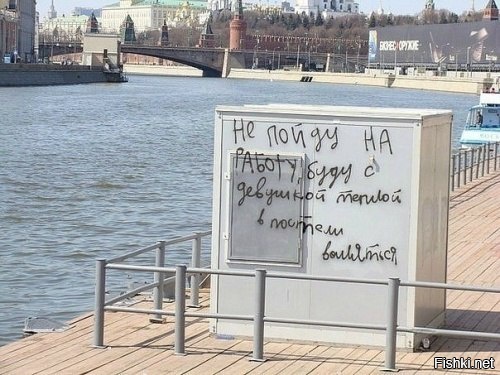 БИЗНЕС ОРУЖИЕ
Не пойду на
работу, буду с
девушкой теплой
в постели
валяться
Fishki.net